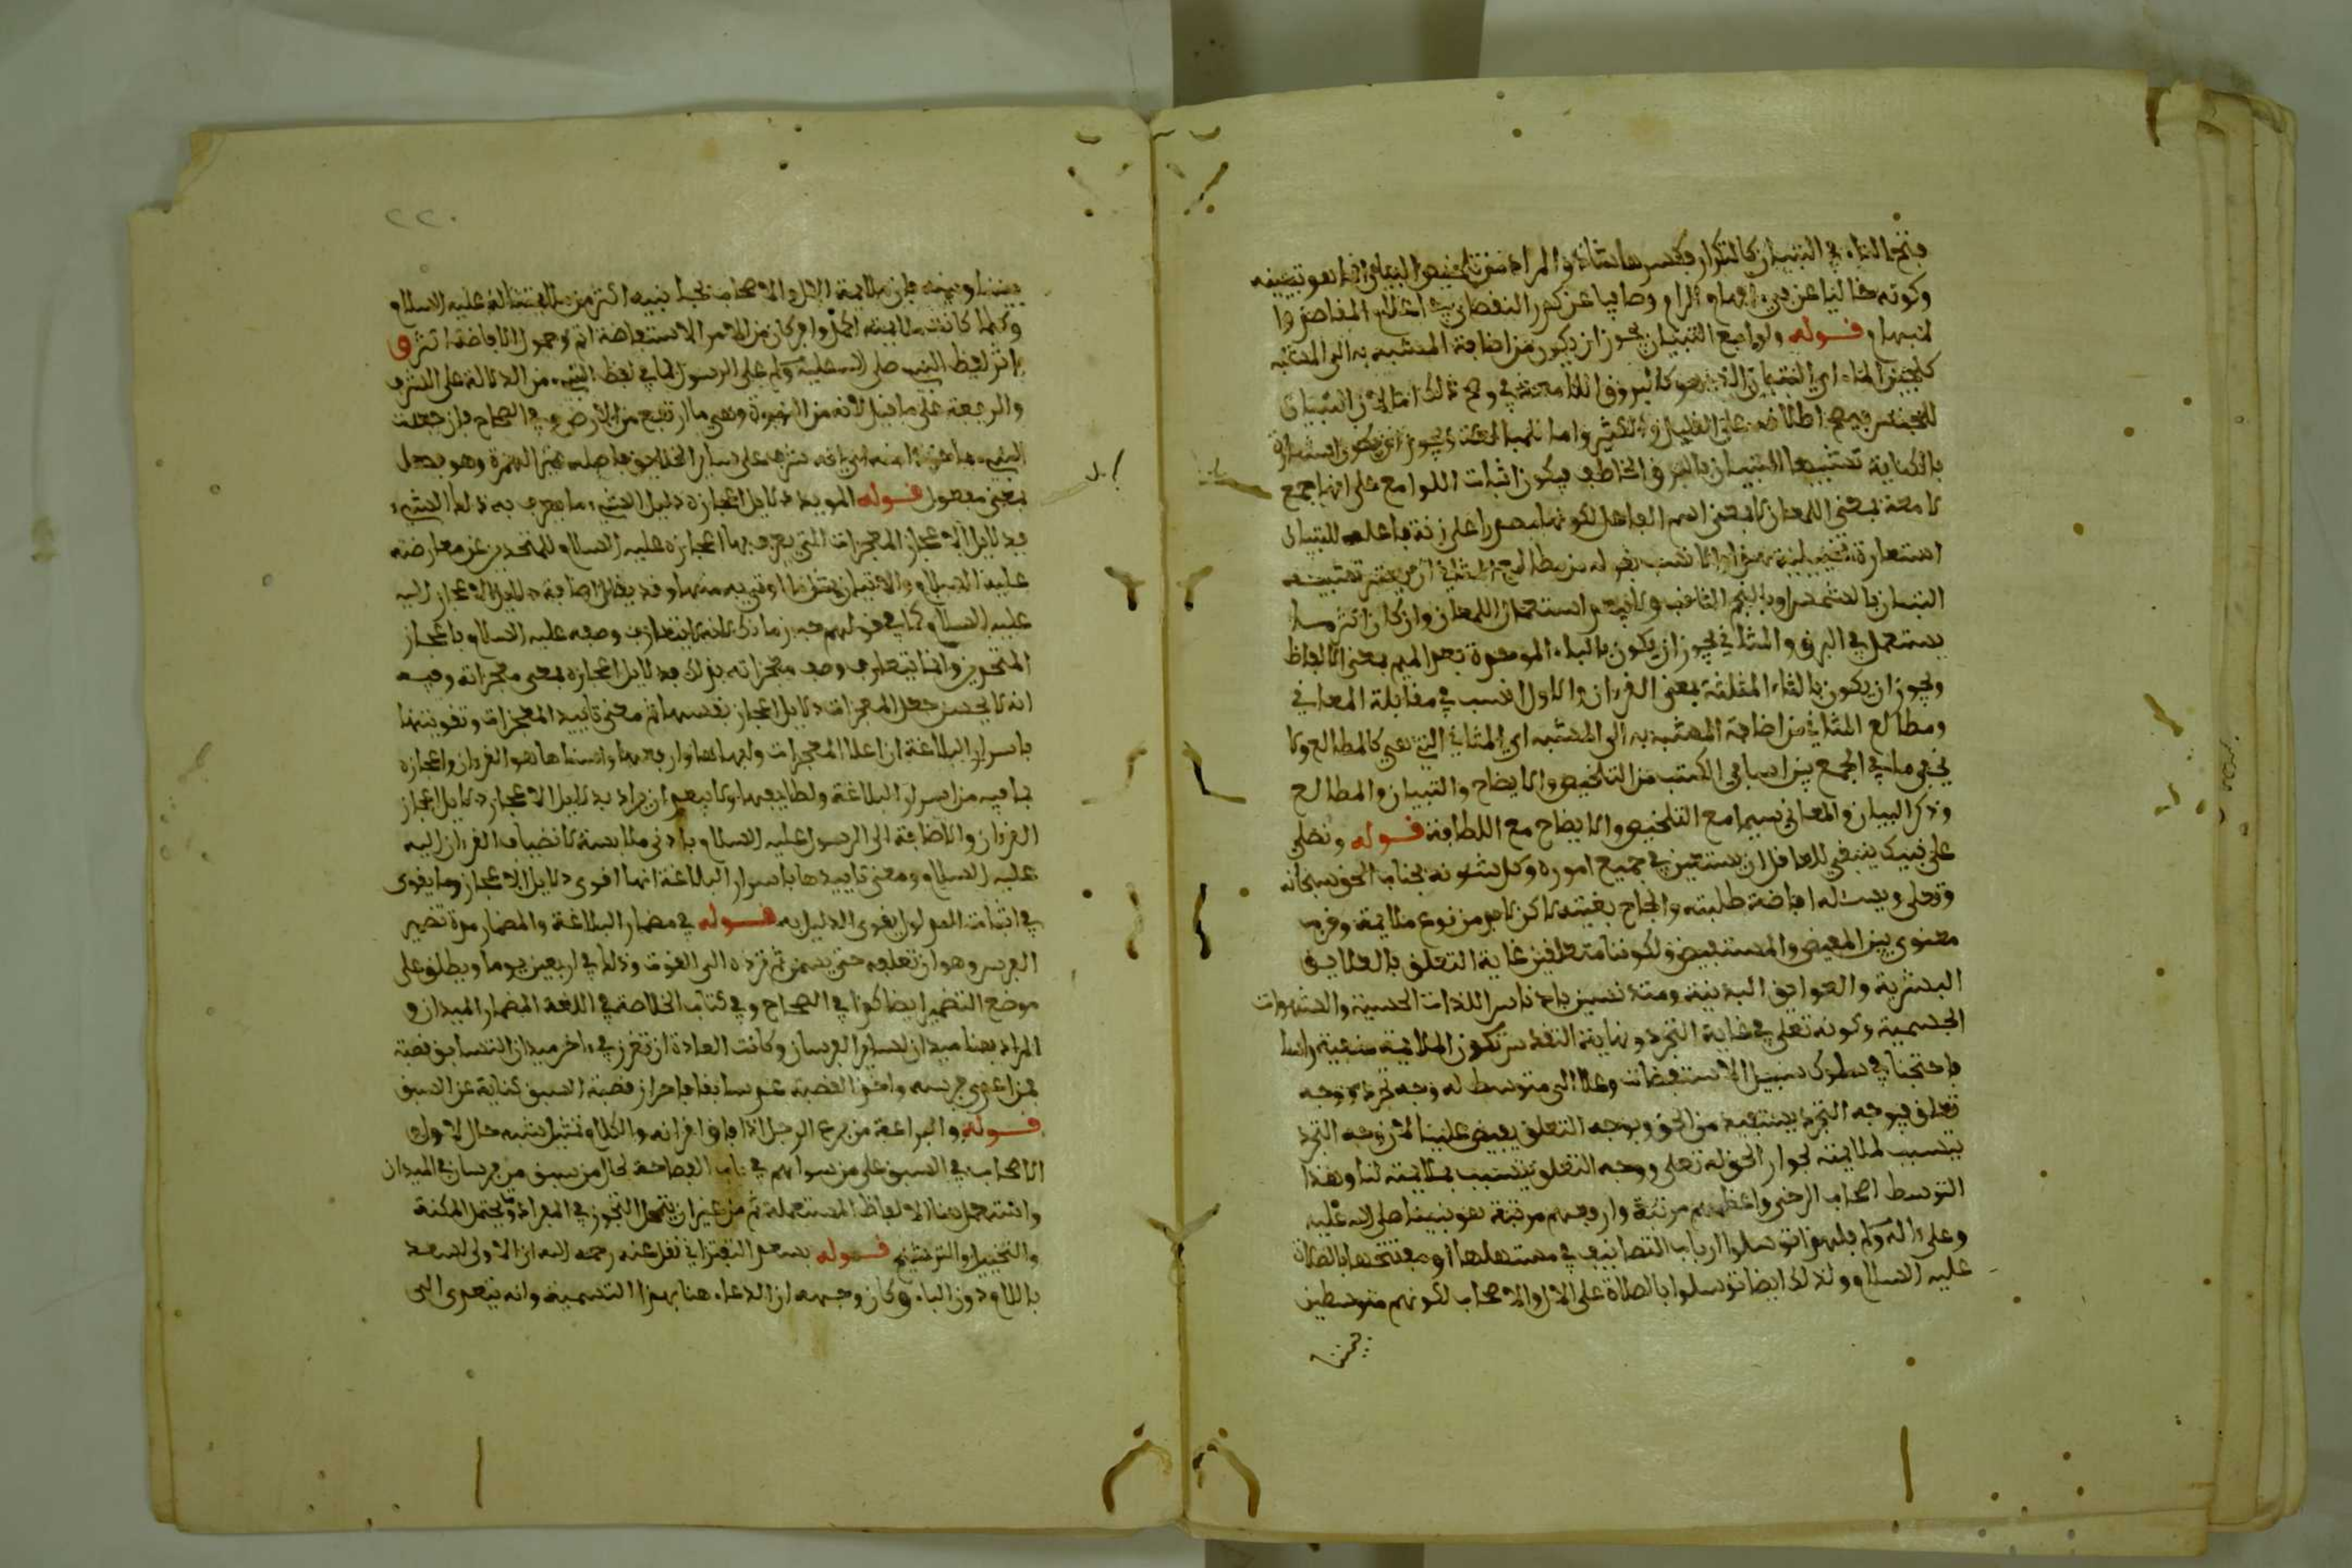 بفتح التاء في التبيان كالتكرار وكسرها شاذ والمراد من تلخيص البيان انما هو تبيينه
وكونه خاليا عن الابهام وصافيا عن كدر النقصان في المقاصد
قوله ولوامع التبيان يجوز ان يكون من اضافة المشبه به الى المشبه
كلجين الماء اي التبيان الذي هو كالبروق اللامعة في وجه ذلك لان التبيان
للجنس فيصح اطلاقه على القليل والكثير واما ويجوز ان يكون استعارة
بالكناية تشبيها للتبيان بالبرق الخاطف ويكون اثبات اللوامع على انها جمع
لامعة بمعنى اللمعان لا بمعنى اسم الفاعل لكونها مصدرا على زنة فاعلة للتبيان
استعارة تخييلية هذا والانسب بقوله من مطالع المثاني ان يعتبر تشبيه
التبيان بالشمس او بالنجم الثاقب ولا يبعد استعمال اللمعان وان كان اكثر ما
يستعمل في البرق والمثاني يجوز ان يكون بالباء الموحدة بعد الميم بمعنى الالفاظ
ويجوز ان يكون بالثاء المثلثة بمعنى القرءان والاول انسب في مقابلة المعاني
ومطالع المثاني من اضافة المشبه به الى المشبه اي المثاني التي هي كالمطالع ولا
يخفى ما في الجمع بين اسامي الكتب من التلخيص والايضاح والتبيان والمطالع
وذكر البيان والمعاني سيما مع التلخيص والايضاح مع اللطافة قوله ونصلي
على نبيك ينبغي للعاقل ان يستعين في جميع اموره وكل شئونه بجناب الحق سبحانه
وتعلى ويسئله افاضة طلبته وانجاح بغيته لاكن لابد من نوع ملايمة وقرب
معنوي بين المفيض والمستفيض ولكوننا متعلقين غاية التعلق بالعلايق
البشرية والعوايق البدنية ومتدنسين بادناس اللذات الحسية والشهوات
الجسمية وكونه تعلى في غاية التجرد ونهاية التقدس تكون الملايمة منتفية رأسا
فاحتجنا في سلوك سبيل الاستفاضات وعلا الى متوسط له وجه تجرد ووجه
تعلق فبوجه التجرد يستفيد من الحق وبوجه التعلق يفيض علينا لان وجه التجرد
يتسبب لملايمته لجوار الحق له تعلى ووجه التعلق يتسبب بملايمته لنا وهذا
التوسط اصحاب الوحي واعظمهم مرتبة وارفعهم مرتبة هو نبينا صلى الله عليه
وعلى ءاله وسلم فلهذا توسلوا ارباب التصانيف في مستهلها او مفتتحها بالصلاة
عليه السلام ولذلك ايضا توسلوا بالصلاة على الال والاصحاب لكونهم متوسطين
بيننا
٢٢٠
بيننا وبينه فان ملايمة الال والاصحاب لجناب نبيه اكثر من ملايمتنا له عليه السلام
وكلما كانت الملايمة اكمل واوفر كان من الامر الاستفاضة اتم وحصول الافاضة اكثر و
ءاثر لفظ النبي صلى الله عليه وسلم على الرسول لما في لفظ النبي من الدلالة على الشرف
والرفعة على ما قيل لانه من النبوة وهي ما ارتفع من الارض وفي الصحاح فان جعلت
النبي ماخوذا منه اي انه شرف على سائر الخلايق فاصله غير الهمزة وهو فعيل
بمعنى مفعول قوله المويد دلايل اعجازه دليل الشيء ما يعرف به ذلك الشيء
فدلايل الاعجاز المعجزات التي يعرف بها اعجازه عليه السلام للمتحدين عن معارضته
عليه السلام والاتيان بمثل ما اوتي به منها وقد يقال اضافة دلايل الاعجاز اليه
عليه السلام كما في قولهم حب زمانك لانه لا يتعارف وصفه عليه السلام باعجاز
المتحدين وانما يتعارف وصف معجزاته بذلك فدلايل اعجازه بمعنى معجزاته وفيه
انه لا يحسن جعل المعجزات دلايل اعجاز نفسها ثم معنى تاييد المعجزات وتقويتها
باسرار البلاغة ان اعلا المعجزات وابهاها وارفعها واسناها هو القرءان واعجازه
بما فيه من اسرار البلاغة ولطايفها ولا يبعد ان يراد بدلايل الاعجاز دلايل اعجاز
القرءان والاضافة الى الرسول عليه السلام بادنى ملابسة لانضياف القرءان اليه
عليه السلام ومعنى تاييدها باسرار البلاغة انها اقوى دلايل الاعجاز وما يقوى
في اثبات المدلول يقوى الدليل به قوله في مضمار البلاغة والمضمار مدة تضمير
الفرس وهو ان تعلفه حتى يسمن ثم ترده الى القوت وذلك في اربعين يوما ويطلق على
موضع التضمير ايضا كذا في الصحاح وفي كتاب الخلاصة في اللغة المضمار الميدان و
المراد هنا ميدان لسباق الفرسان وكانت العادة ان تغرز في ءاخر ميدان التسابق قصبة
فمن اعدى فرسه واخذ القصبة عد سابقا فاحراز قصبة السبق كناية عن السبق
قوله والبراعة من برع الرجل اذا فاق اقرانه والكلام تمثيل شبه حال الاول
الاصحاب في السبق على من سواهم في باب الفصاحة بحال من سبق من فرسان في الميدان
واستعمل هنا الالفاظ المستعملة ثم من غير ان يتمحل التجوز في المفرد ويحتمل المكنية
والتخييل والترشيح قوله بسعد التفتزاني نقل عنه رحمه الله ان الاولى لسعد
باللام دون الباء وكان وجهه ان الدعاء هنا بهذا التسمية وانه يتعدى الى